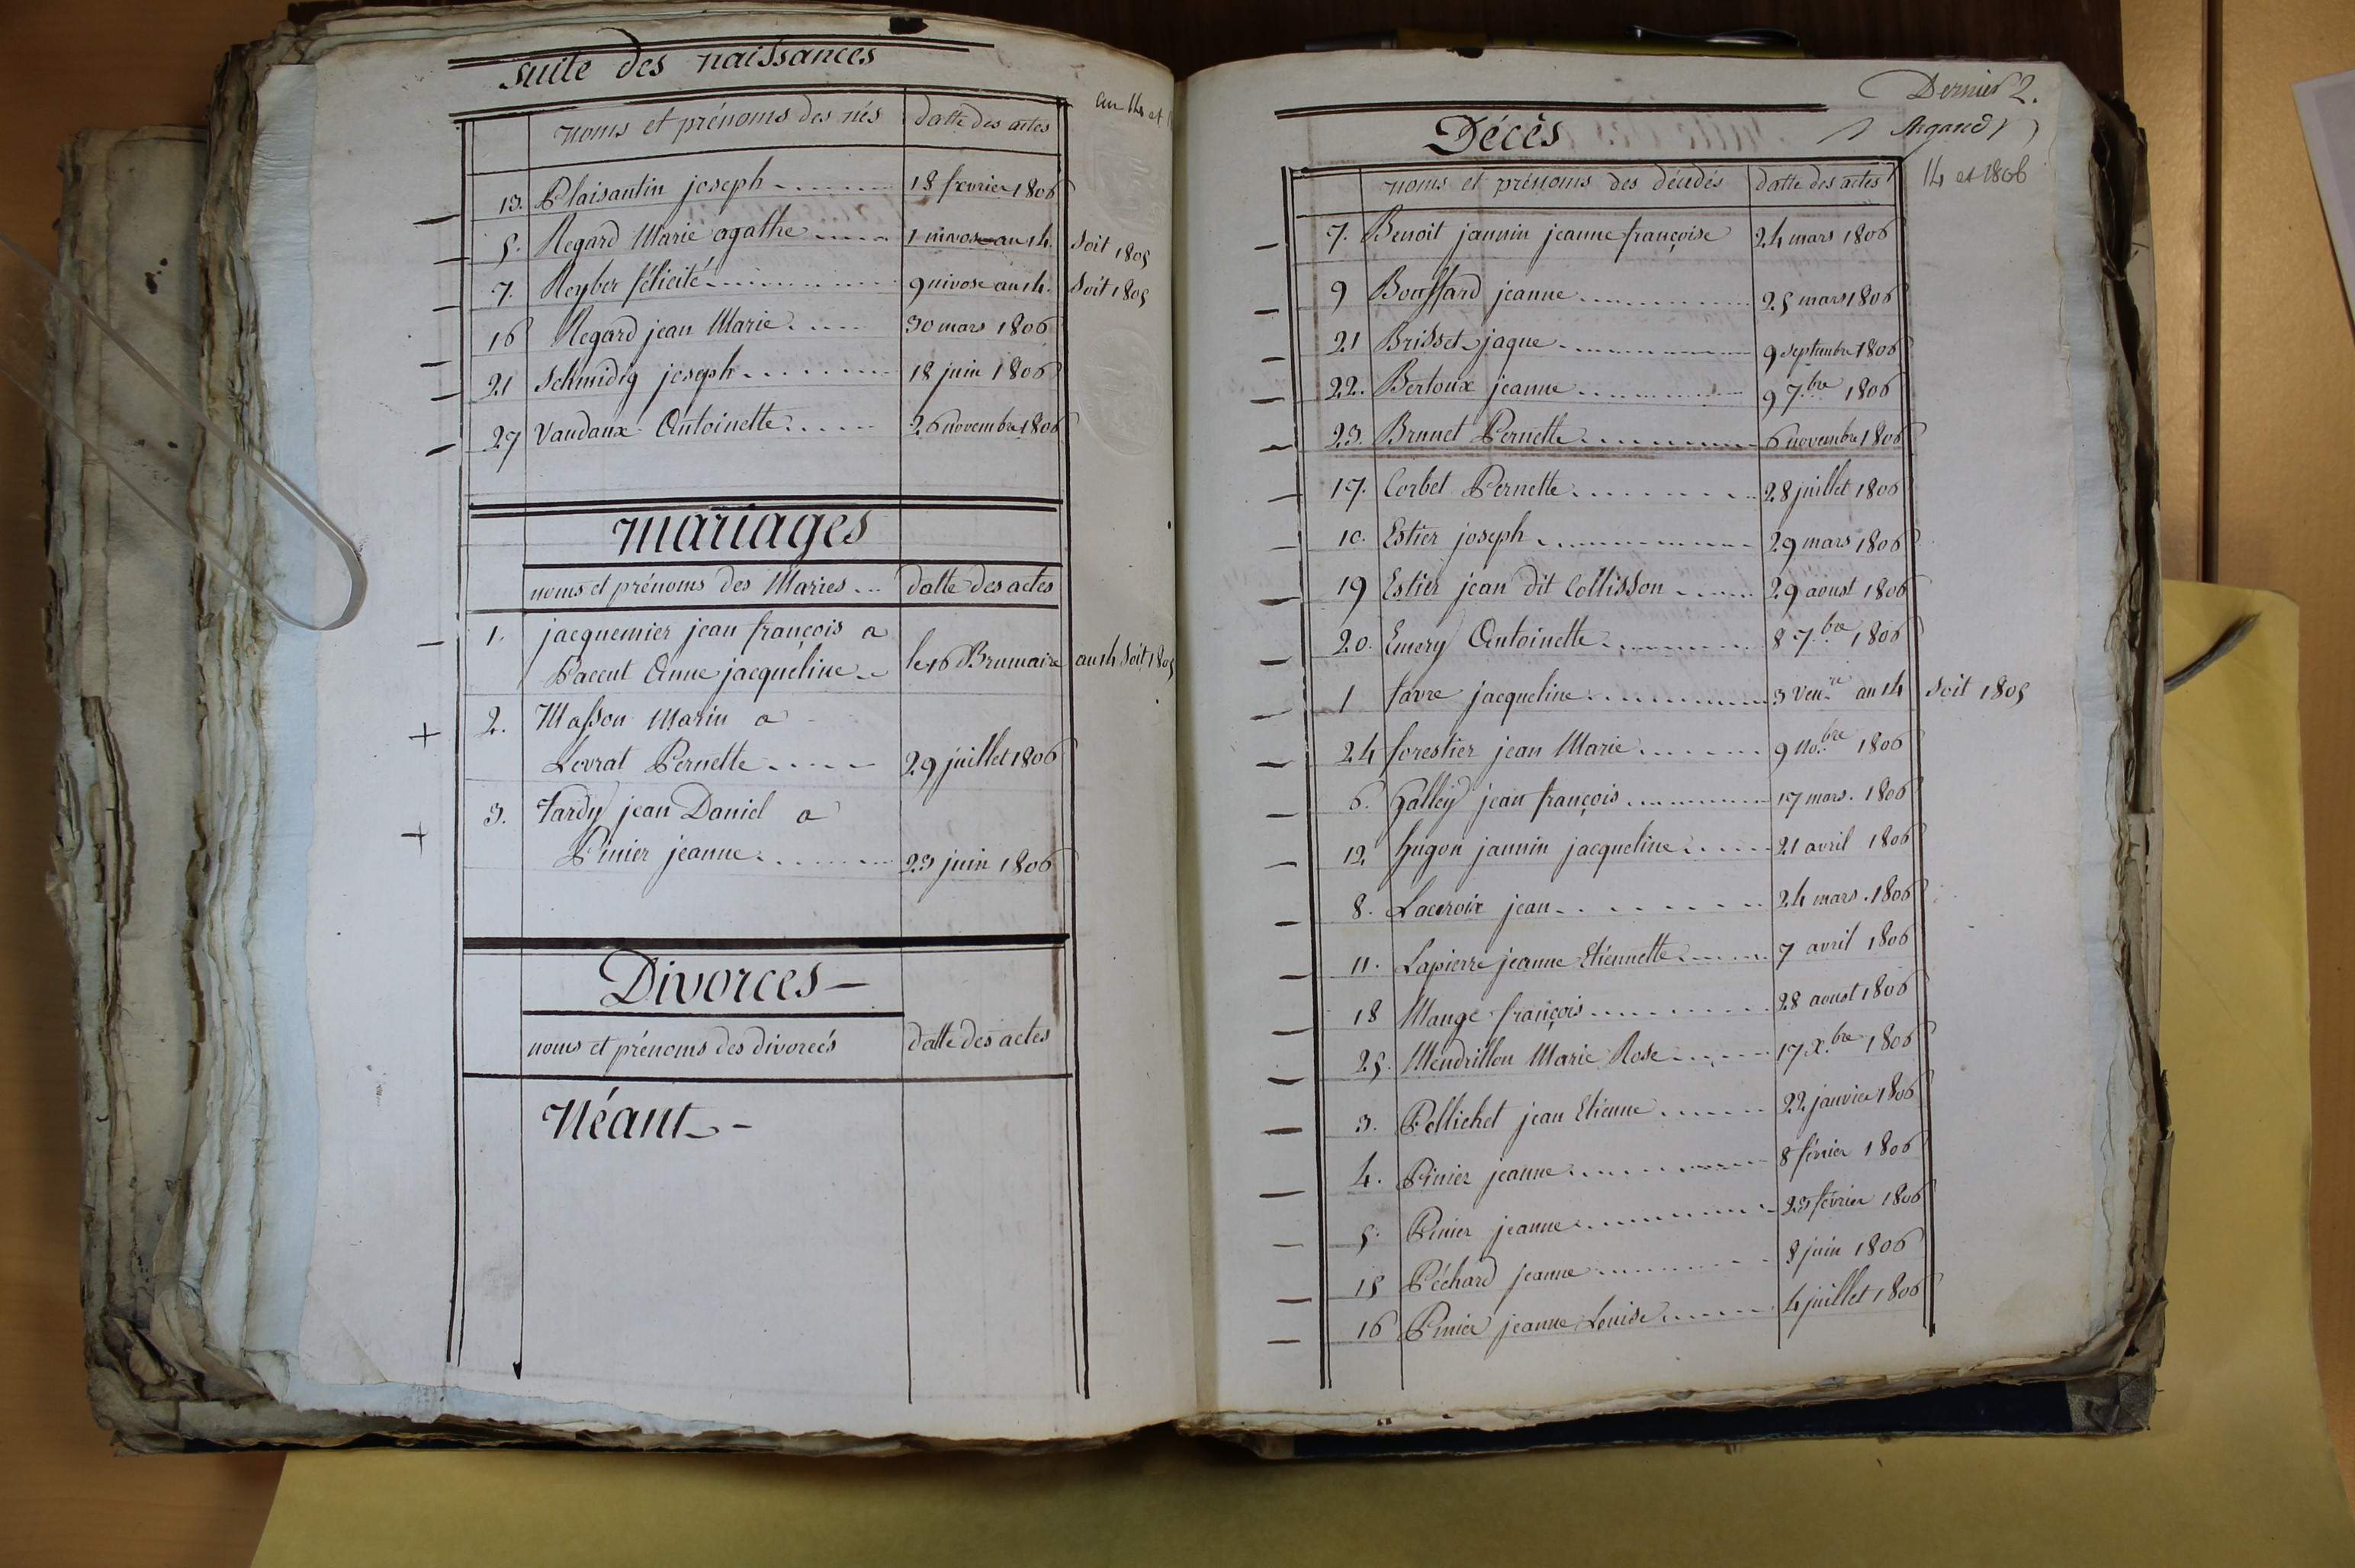 Suite des naissances
an 14 et
noms et prénoms des nés datte des actes
13. Plaisantin joseph 18 fevrier 1806
5. Regard Marie agathe 1 nivose an 14. Soit 1805
7. Reyber félicité 9 nivose an 14. Soit 1805
16 Regard jean Marie 30 mars 1806
21 Schmidig joseph 18 juin 1806
27 Vaudaux Antoinette 26 novembre 1806
Mariages
noms et prénoms des Maries datte des actes
1. jacquemier jean françois a
Paccut Anne jacqueline le 16 Brumaire an 14 Soit 1805
2. Masson Marin a
Levrat Pernette 29 juillet 1806
3. Tardy jean Daniel a
Pinier jeanne 23 juin 1806
Divorces
noms et prénoms des divorcés datte des actes
Néant
Dernier 2.
Décès
14 et 1806
noms et prénoms des décédés datte des actes
7. Benoit jannin jeanne françoise 24 mars 1806
9 Bouffard jeanne 25 mars 1806
21 Brisset jaque 9 septembre 1806
22. Bertoux jeanne 9 7.bre 1806
23. Brunet Pernette 6 novembre 1806
17. Corbet Pernette 28 juillet 1806
10. Estier joseph 29 mars 1806
19 Estier jean dit Collisson 29 aoust 1806
20. Emery Antoinette 8 7.bre 1806
1 favre jacqueline 3 Ven.re an 14 Soit 1805
24 forestier jean Marie 9 no.bre 1806
6. Galley jean françois 17 mars. 1806
12 hugon jannin jacqueline 21 avril 1806
8. Lacroix jean 24 mars. 1806
11. Lapierre jeanne Etiennette 7 avril 1806
18 Mange françois 28 aoust 1806
25. Mendrillon Marie Rose 17 X.bre 1806
3. Pellichet jean Etienne 22 janvier 1806
4. Pinier jeanne 8 février 1806
5. Pinier jeanne 23 février 1806
15 Péchard jeanne 8 juin 1806
16 Pinier jeanne Louise 4 juillet 1806